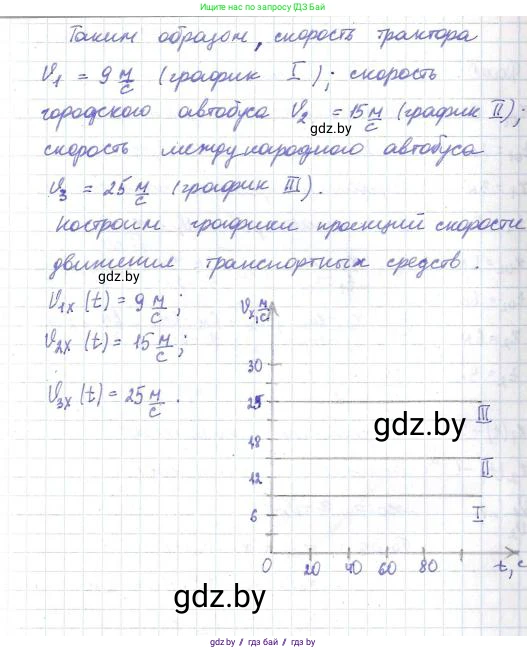 Ищите нас по запросу (ГДЗ БАЙ)
Таким образом, скорость трактора
V₁ = 9 м/с (график I); скорость
городского автобуса V₂ = 15 м/с (график II);
gdz.by
скорость международного автобуса
V₃ = 25 м/с (график III).
Построим графики проекций скорости
движения транспортных средств.
gdz.by
V₁ₓ(t) = 9 м/с;
V₂ₓ(t) = 15 м/с;
V₃ₓ(t) = 25 м/с.
Vₓ, м/с
30
25
III
gdz.by
18
II
12
6
I
0 20 40 60 80 t, с
gdz.by
gdz.by / гдз бай / gdz.by